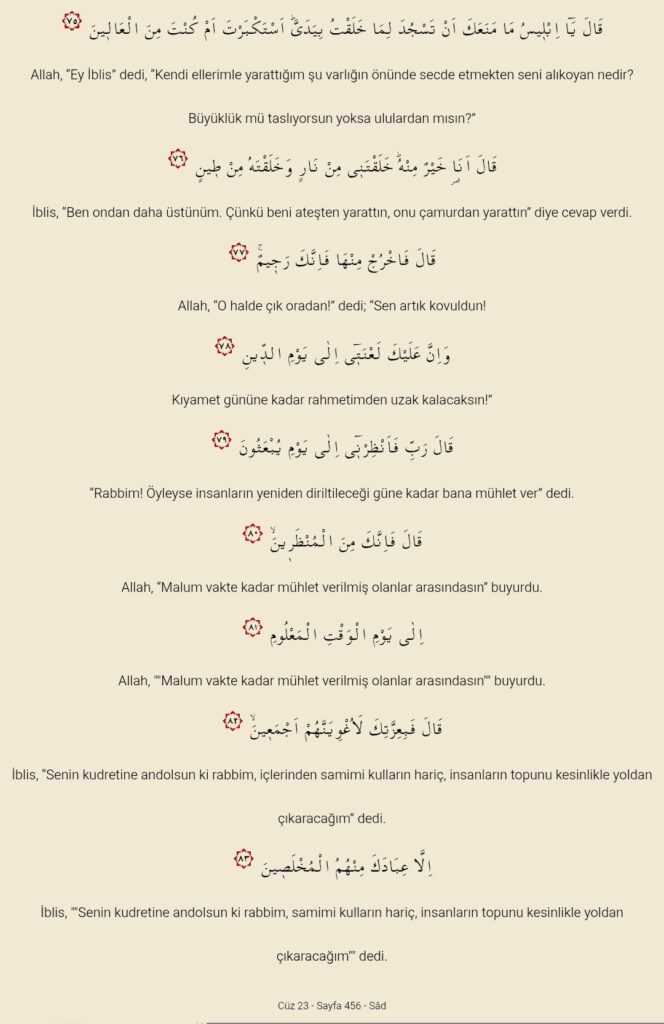 قَالَ يَٓا اِبْل۪يسُ مَا مَنَعَكَ اَنْ تَسْجُدَ لِمَا خَلَقْتُ بِيَدَيَّۜ اَسْتَكْبَرْتَ اَمْ كُنْتَ مِنَ الْعَال۪ينَ ٧٥
Allah, “Ey İblis” dedi, “Kendi ellerimle yarattığım şu varlığın önünde secde etmekten seni alıkoyan nedir?
Büyüklük mü taslıyorsun yoksa ululardan mısın?”
قَالَ اَنَا۬ خَيْرٌ مِنْهُۜ خَلَقْتَن۪ي مِنْ نَارٍ وَخَلَقْتَهُ مِنْ ط۪ينٍ ٧٦
İblis, “Ben ondan daha üstünüm. Çünkü beni ateşten yarattın, onu çamurdan yarattın” diye cevap verdi.
قَالَ فَاخْرُجْ مِنْهَا فَاِنَّكَ رَج۪يمٌۚ ٧٧
Allah, “O halde çık oradan!” dedi; “Sen artık kovuldun!
وَاِنَّ عَلَيْكَ لَعْنَت۪ٓي اِلٰى يَوْمِ الدّ۪ينِ ٧٨
Kıyamet gününe kadar rahmetimden uzak kalacaksın!”
قَالَ رَبِّ فَاَنْظِرْن۪ٓي اِلٰى يَوْمِ يُبْعَثُونَ ٧٩
“Rabbim! Öyleyse insanların yeniden diriltileceği güne kadar bana mühlet ver” dedi.
قَالَ فَاِنَّكَ مِنَ الْمُنْظَر۪ينَۙ ٨٠
Allah, “Malum vakte kadar mühlet verilmiş olanlar arasındasın” buyurdu.
اِلٰى يَوْمِ الْوَقْتِ الْمَعْلُومِ ٨١
Allah, ""Malum vakte kadar mühlet verilmiş olanlar arasındasın"" buyurdu.
قَالَ فَبِعِزَّتِكَ لَاُغْوِيَنَّهُمْ اَجْمَع۪ينَۙ ٨٢
İblis, “Senin kudretine andolsun ki rabbim, içlerinden samimi kulların hariç, insanların topunu kesinlikle yoldan
çıkaracağım” dedi.
اِلَّا عِبَادَكَ مِنْهُمُ الْمُخْلَص۪ينَ ٨٣
İblis, ""Senin kudretine andolsun ki rabbim, samimi kulların hariç, insanların topunu kesinlikle yoldan
çıkaracağım"" dedi.
Cüz 23 - Sayfa 456 - Sâd